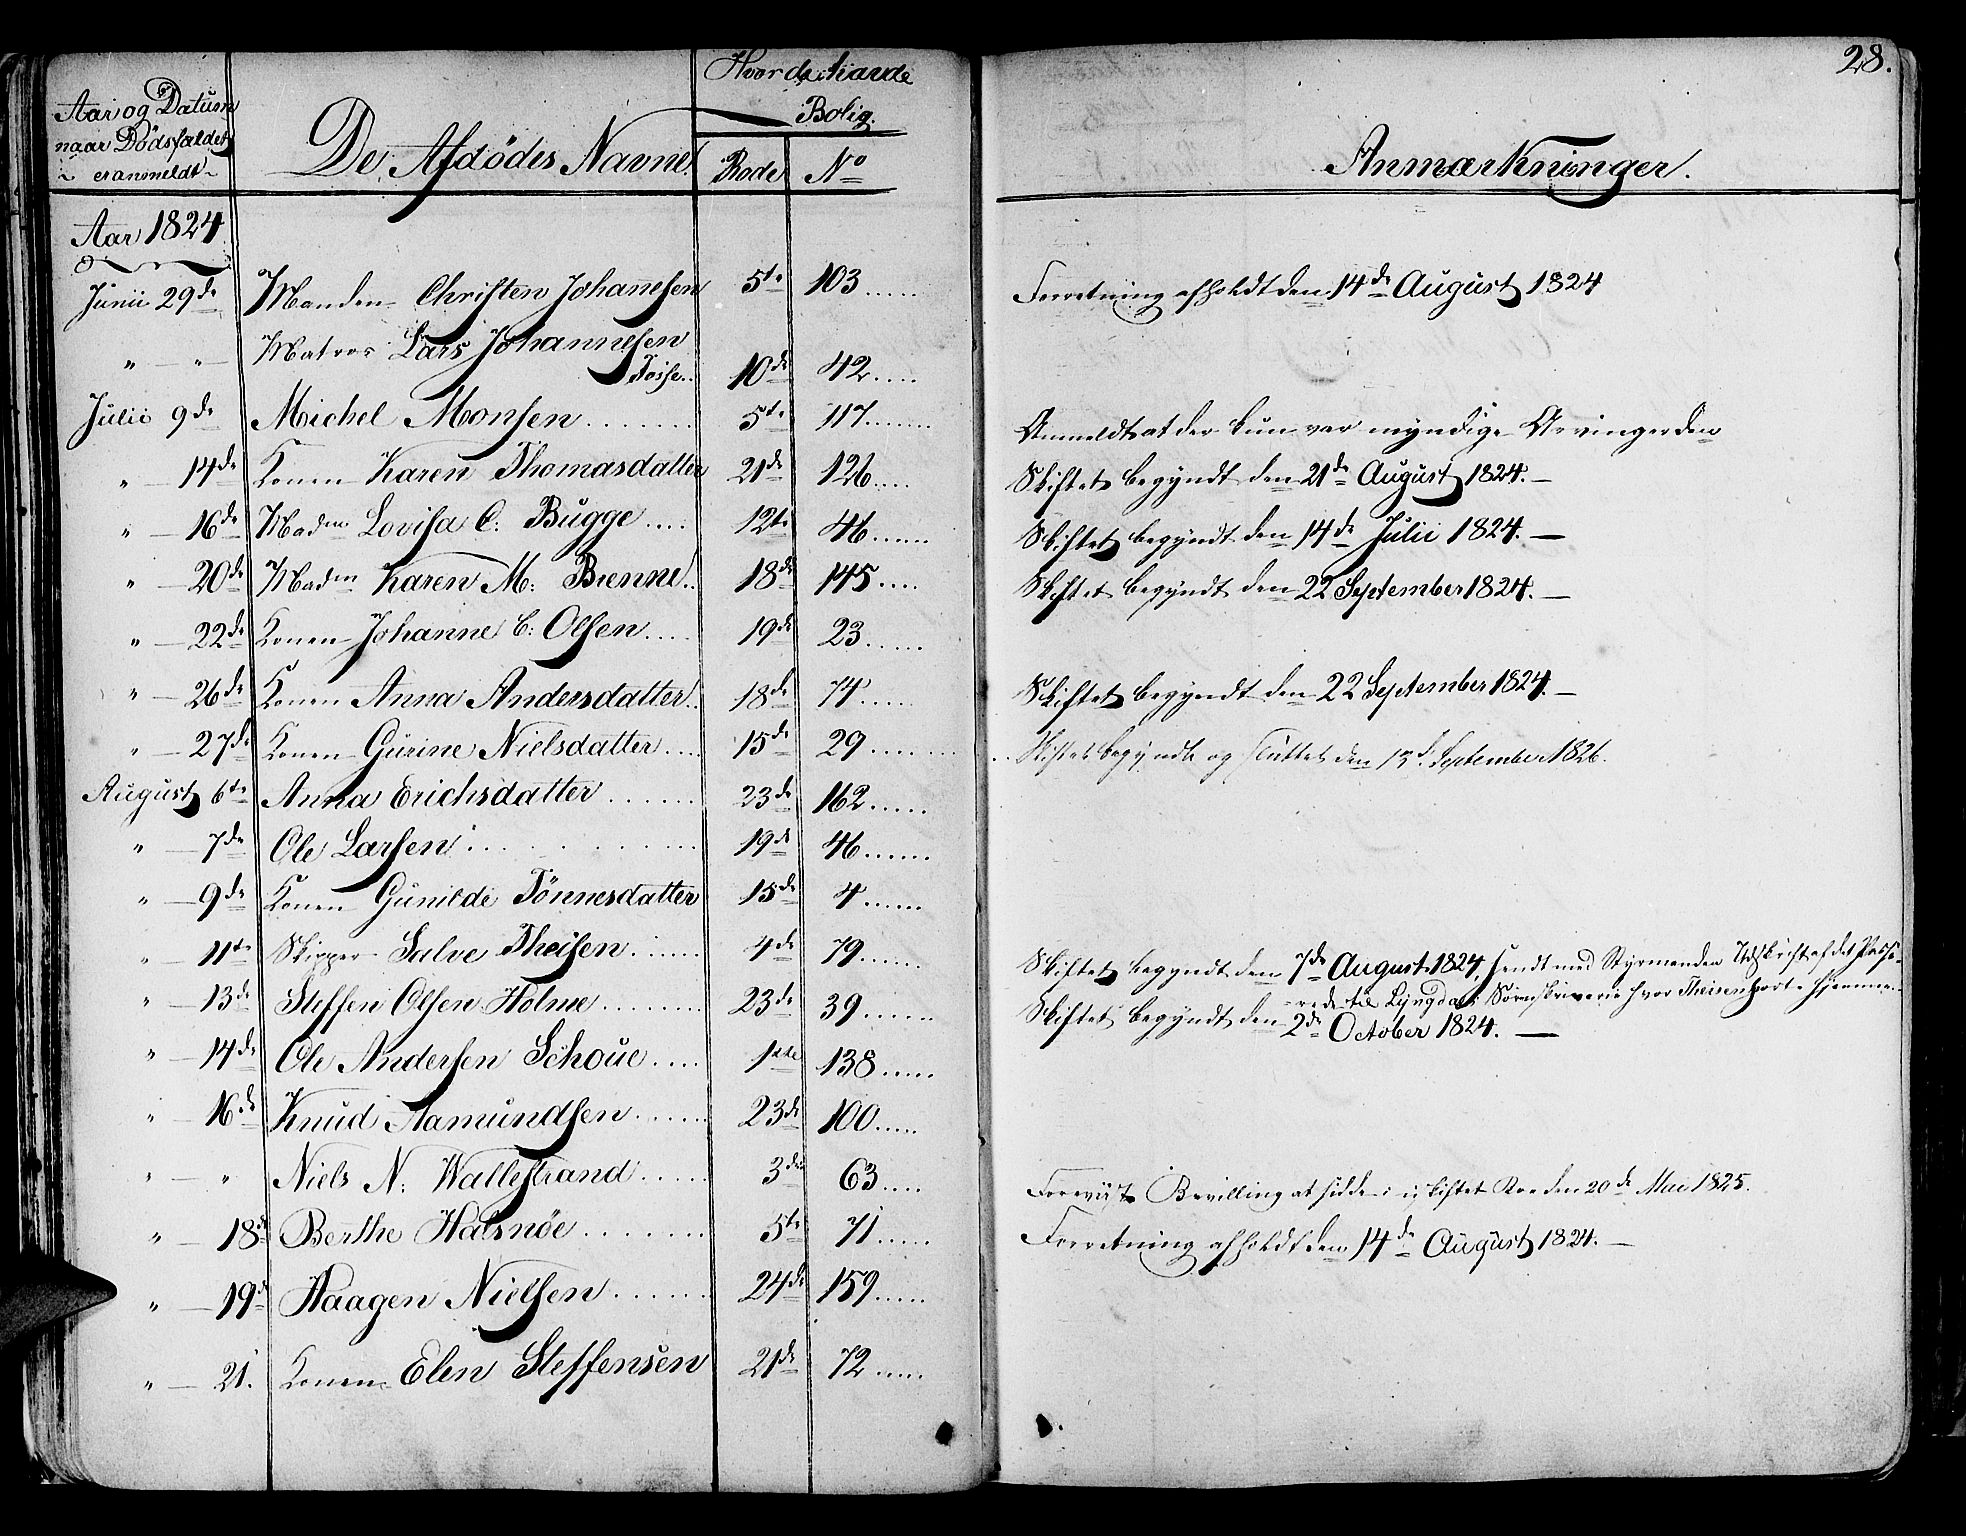 28.
Aar og Datum
naar Dödsfaldet
er anmeldt
De Afdödes Navne
Hvor de havde
Bolig.
Rode No
Anmærkninger.
Aar 1824
Junii 29de Manden Christen Johannesen 5te 103 Forretning afholdt den 14de August 1824
" — " — Matros Lars Johannesen
Tosse 10de 42
Julii 9de Michel Monsen 5te 117 Anmeldt at der kun var myndige Arvinger den
" — 14de Konen Karen Thomasdatter 21de 126 Skiftet begyndt den 21de August 1824. —
" — 16de Madm Lovisa C: Bugge 12te 46 Skiftet begyndt den 14de Julii 1824. —
" — 20de Madm Karen M: Bienne 18de 145 Skiftet begyndt den 22 September 1824. —
" — 22de Konen Johanne C: Olsen 19de 23
" — 26de Konen Anna Andersdatter 18de 74 Skiftet begyndt den 22 September 1824. —
" — 27de Konen Gurine Nielsdatter 15de 29 Skiftet begyndt og sluttet den 13de September 1826.
August 6te Anna Erichsdatter 23de 162
" — 7de Ole Larsen 19de 46
" — 9de Konen Gunilde Tönnesdatter 15de 4
" — 11te Skipper Salve Theisen 4de 79 Skiftet begyndt den 7de August 1824, sendt med Styrmanden Udskrift af det Passe-
rede til Lyngdals Sörenskriverie hvor Theisen hörte hjemme.
" — 13de Steffen Olsen Holme 23de 39 Skiftet begyndt den 2de October 1824. —
" — 14de Ole Andersen Schoue 1ste 138
" — 16de Knud Aamundsen 23de 100
" — " Niels N: Wallestrand 3die 63 Foreviist Bevilling at sidde i uskiftet Boe den 20de Mai 1825.
" — 18de Berthe Halsnöe 5te 71 Forretning afholdt den 14de August 1824. —
" — 19de Haagen Nielsen 24de 159
" — 21. Konen Elen Steffensen 21de 72